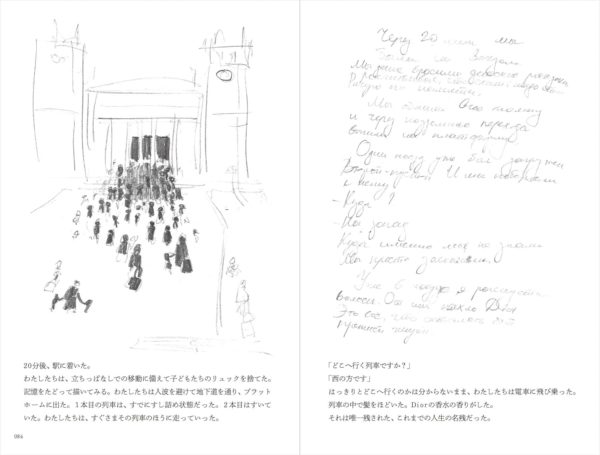 20分後、駅に着いた。
わたしたちは、立ちっぱなしでの移動に備えて子どもたちのリュックを捨てた。
記憶をたどって描いてみる。わたしたちは人波を避けて地下道を通り、プラット
ホームに出た。1本目の列車は、すでにすし詰め状態だった。2本目はすいて
いた。わたしたちは、すぐさまその列車のほうに走っていった。
084
Через 20 мин мы
были на вокзале
Мы
Мы обошли толпу
и через переход
вышли на платформу
Один поезд уже был загружен
Второй И мы побежали
к нему
- Куда?
- На запад
Куда именно мы не знали
Мы просто
Уже в поезде я
волосы. От них пахло Dior
Это все, что осталось от
прошлой жизни
「どこへ行く列車ですか？」
「西の方です」
はっきりとどこへ行くのかは分からないまま、わたしたちは電車に飛び乗った。
列車の中で髪をほどいた。Diorの香水の香りがした。
それは唯一残された、これまでの人生の名残だった。